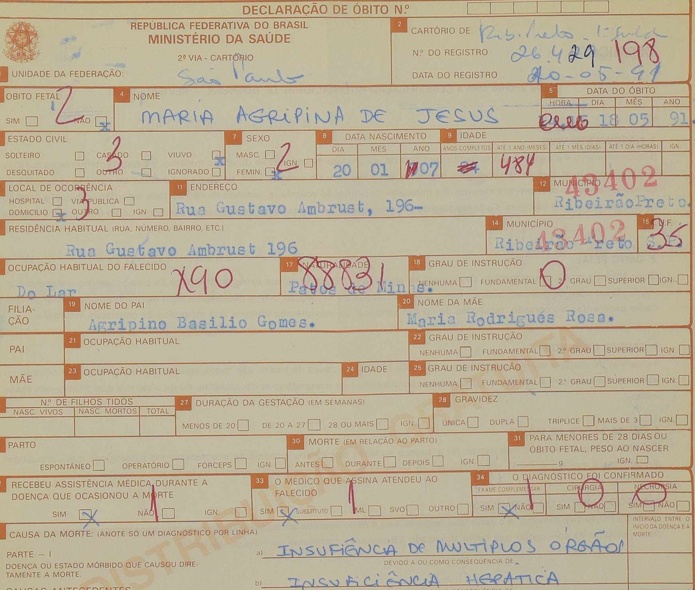 DECLARAÇÃO DE ÓBITO N.º
REPÚBLICA FEDERATIVA DO BRASIL
MINISTÉRIO DA SAÚDE
2ª VIA - CARTÓRIO
UNIDADE DA FEDERAÇÃO: São Paulo
2 CARTÓRIO DE Rib. Preto
N.º DO REGISTRO 26.429 198
DATA DO REGISTRO 20-05-91
ÓBITO FETAL 2
SIM NÃO x
4 NOME
MARIA AGRIPINA DE JESUS
5 DATA DO ÓBITO
HORA DIA MÊS ANO
18 05 91
ESTADO CIVIL 3
SOLTEIRO CASADO VIUVO x
DESQUITADO OUTRO IGNORADO
7 SEXO 2
MASC. IGN.
FEMIN. x
8 DATA NASCIMENTO
DIA MÊS ANO
20 01 07
9 IDADE
ANOS COMPLETOS ATÉ 1 ANO (MESES) ATÉ 1 MÊS (DIAS) ATÉ 1 DIA (HORAS) IGN.
484
LOCAL DE OCORRÊNCIA 3
HOSPITAL VIA PÚBLICA
DOMICILIO x OUTRO IGN
11 ENDEREÇO
Rua Gustavo Ambrust, 196-
12 MUNICÍPIO 43402
RibeirãoPreto
RESIDÊNCIA HABITUAL (RUA, NÚMERO, BAIRRO, ETC.)
Rua Gustavo Ambrust 196
14 MUNICÍPIO 43402
Ribeirão Preto
15 U.F. 35
OCUPAÇÃO HABITUAL DO FALECIDO
Do Lar X90
17 NATURALIDADE 88831
Patos de Minas.
18 GRAU DE INSTRUÇÃO
NENHUMA FUNDAMENTAL 0 GRAU SUPERIOR IGN.
FILIA-
ÇÃO
19 NOME DO PAI
Agripino Basilio Gomes.
20 NOME DA MÃE
Maria Rodrigues Rosa.
PAI
21 OCUPAÇÃO HABITUAL
22 GRAU DE INSTRUÇÃO
NENHUMA FUNDAMENTAL 2.º GRAU SUPERIOR IGN.
MÃE
23 OCUPAÇÃO HABITUAL
24 IDADE
25 GRAU DE INSTRUÇÃO
NENHUMA FUNDAMENTAL 2.º GRAU SUPERIOR IGN.
N.º DE FILHOS TIDOS
NASC. VIVOS NASC. MORTOS TOTAL
27 DURAÇÃO DA GESTAÇÃO (EM SEMANAS)
MENOS DE 20 DE 20 A 27 28 OU MAIS IGN.
28 GRAVIDEZ
ÚNICA DUPLA TRIPLICE MAIS DE 3 IGN.
PARTO
ESPONTÂNEO OPERATÓRIO FORCEPS IGN.
30 MORTE (EM RELAÇÃO AO PARTO)
ANTES DURANTE DEPOIS IGN.
31 PARA MENORES DE 28 DIAS OU
ÓBITO FETAL, PESO AO NASCER
g IGN.
RECEBEU ASSISTÊNCIA MÉDICA DURANTE A
DOENÇA QUE OCASIONOU A MORTE 1
SIM x NÃO IGN
33 O MÉDICO QUE ASSINA ATENDEU AO
FALECIDO 1
SIM x SUBSTITUTO IML SVO OUTRO
34 O DIAGNÓSTICO FOI CONFIRMADO
EXAME COMPLEMENTAR CIRURGIA NECROPSIA
1 0 0
SIM NÃO SIM NÃO SIM NÃO
CAUSA DA MORTE: (ANOTE SÓ UM DIAGNÓSTICO POR LINHA)
INTERVALO ENTRE O INÍCIO DA DOENÇA E A MORTE
PARTE - I
DOENÇA OU ESTADO MÓRBIDO QUE CAUSOU DIRE
TAMENTE A MORTE.
a) INSUFIÊNCIA DE MULTIPLOS ÓRGÃOS
DEVIDO A OU COMO CONSEQUÊNCIA DE:
b) INSUFICIÊNCIA HEPATICA
CAUSAS ANTECEDENTES
DISTRIBUIÇÃO GRATUITA